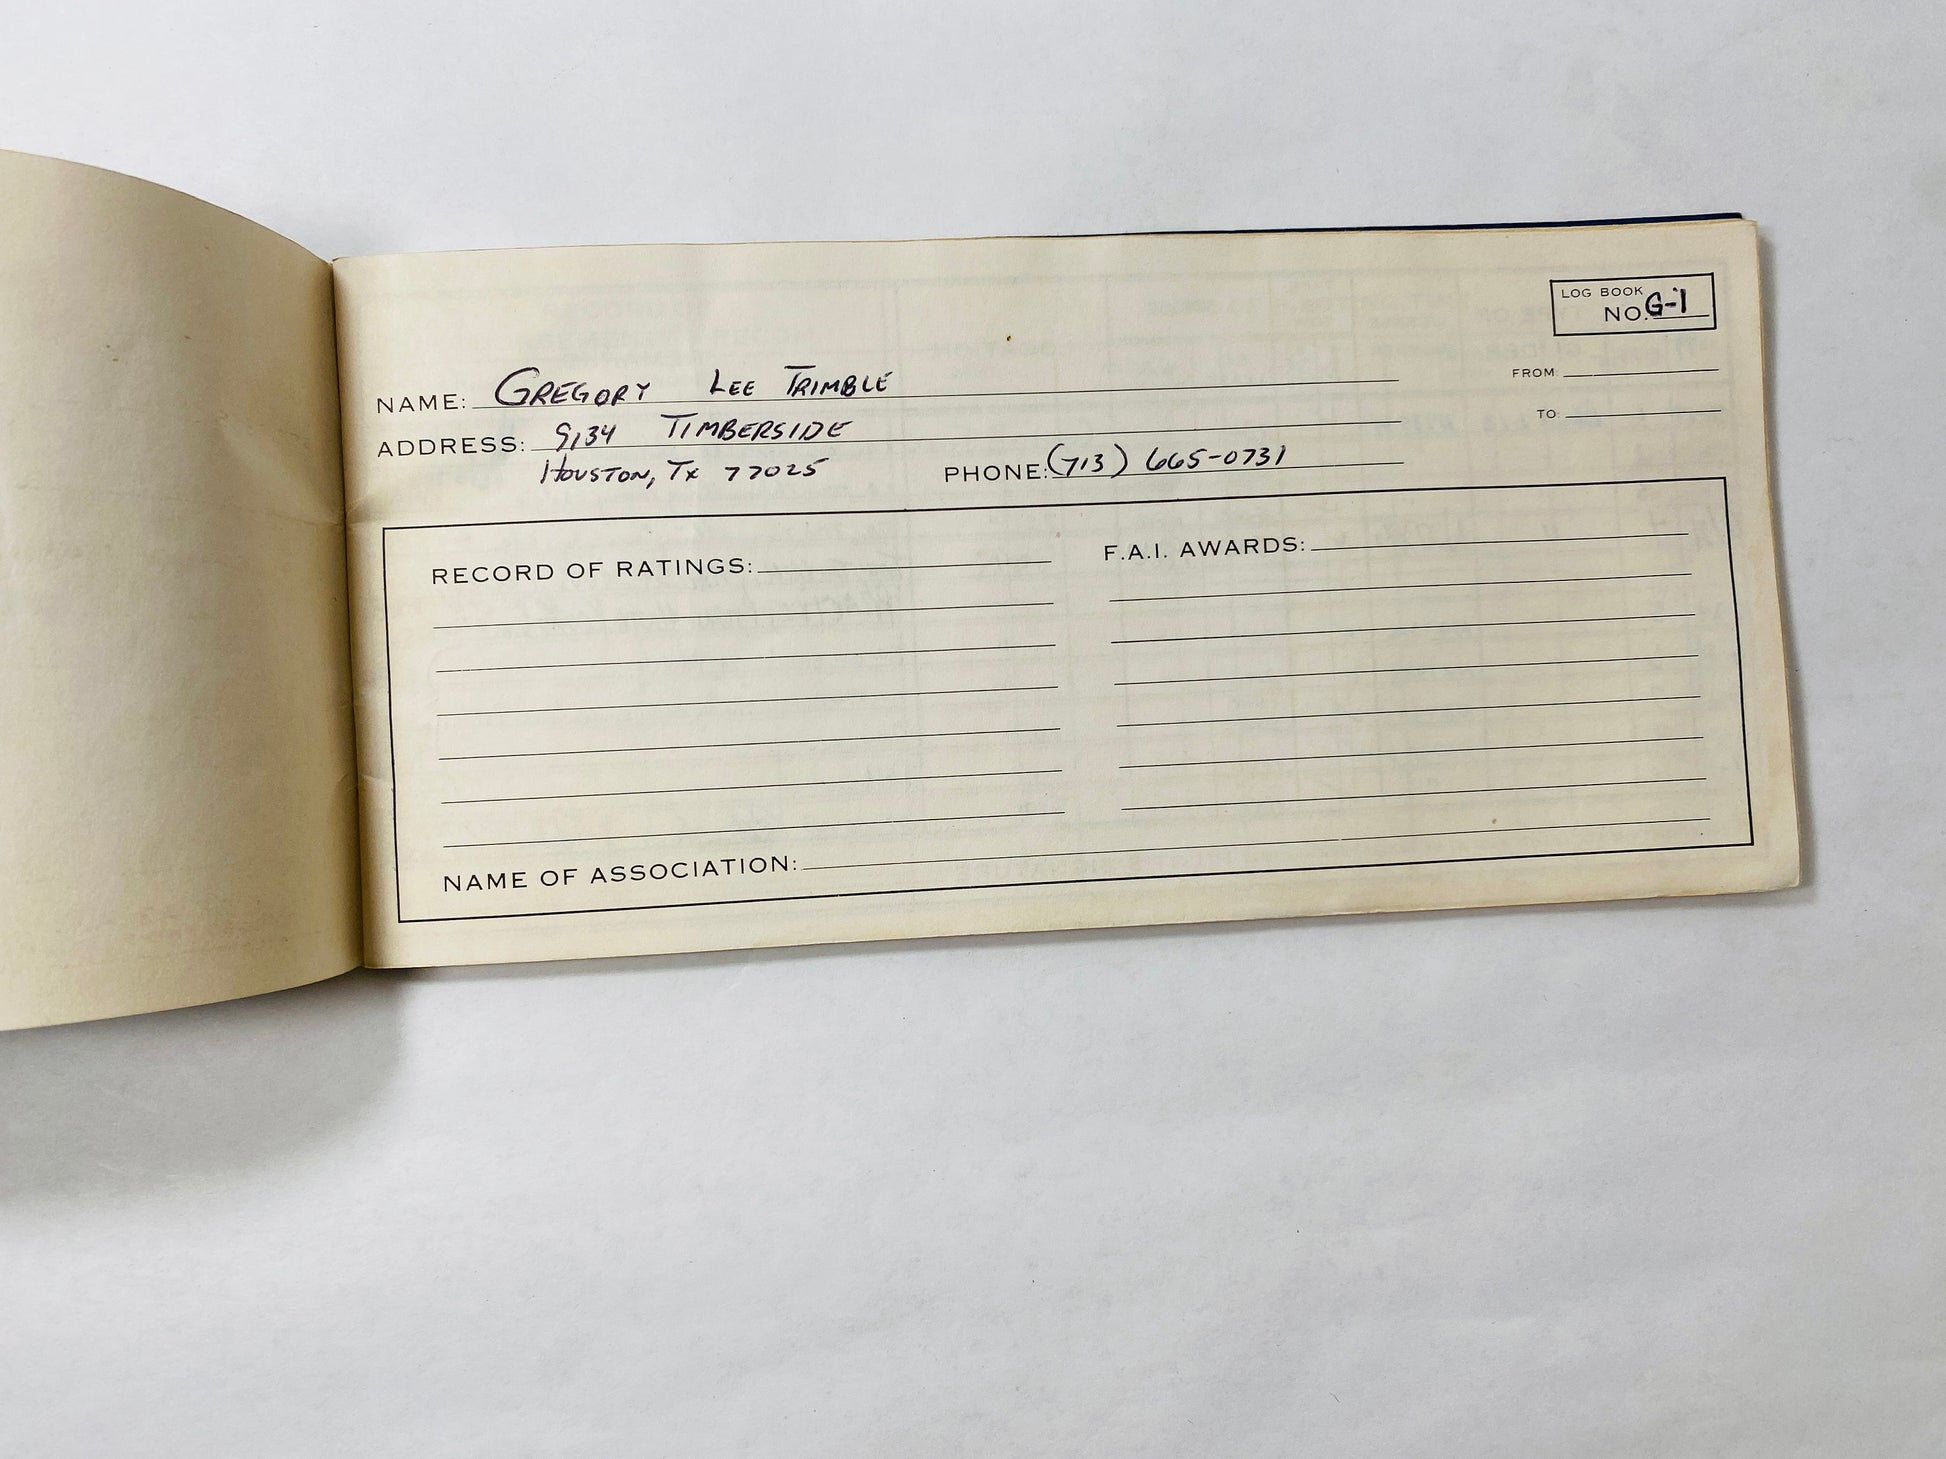 LOG BOOK
NO. G-1
NAME: GREGORY LEE TRIMBLE
FROM:
ADDRESS: 9134 TIMBERSIDE
TO:
HOUSTON, TX 77025 PHONE: (713) 665-0731
RECORD OF RATINGS: F.A.I. AWARDS:
NAME OF ASSOCIATION: